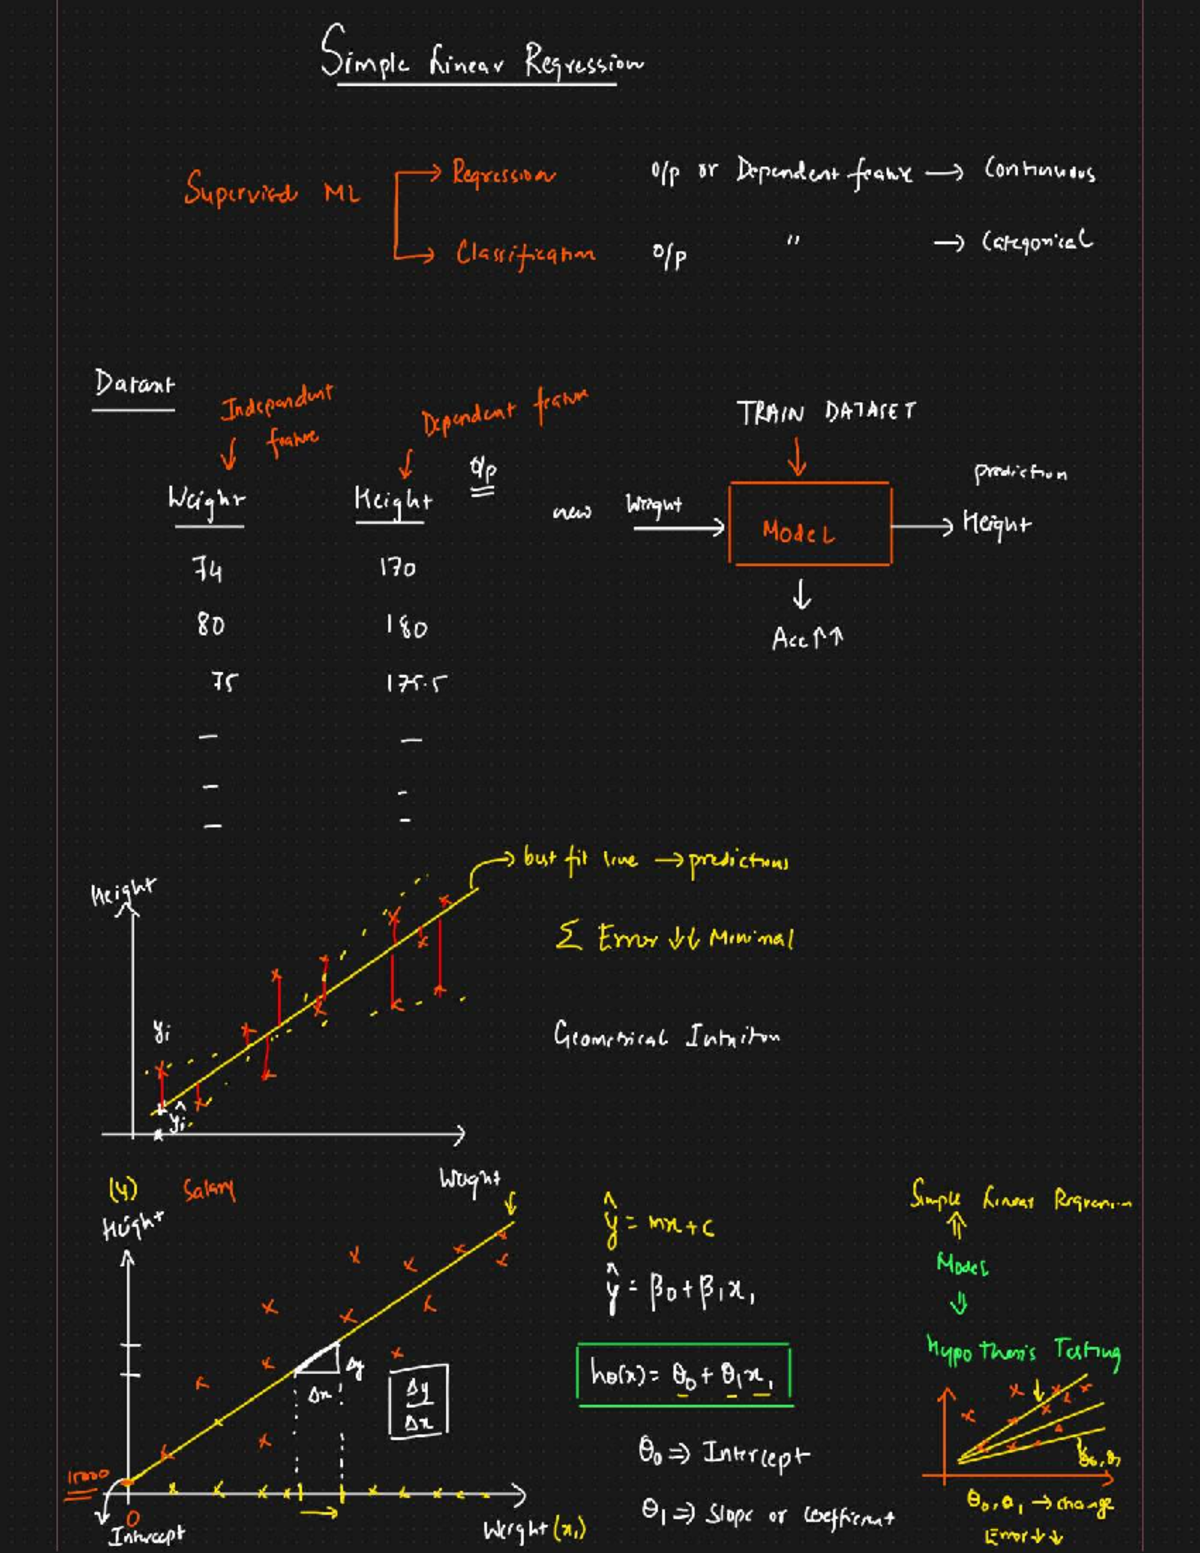 Simple Linear Regression
Supervised ML → Regression o/p or Dependent feature → Continuous
→ Classification o/p " → Categorical
Dataset
Independent feature
Dependent feature
o/p
Weight Height
74 170
80 180
75 175.5
— —
— —
— —
TRAIN DATASET
new Weight → Model → Height
prediction
Acc ↑↑
Height
best fit line → predictions
Σ Error ↓↓ Minimal
Geometrical Intuition
yi
ŷi
Weight
(y) Salary
Height
Δy
Δx
Δy
Δx
0
Intercept
Weight (x₁)
ŷ = mx+c
ŷ = β₀ + β₁x₁
hθ(x) = θ₀ + θ₁x₁
θ₀ ⇒ Intercept
θ₁ ⇒ Slope or coefficient
Simple Linear Regression
⇑
Model
⇓
Hypothesis Testing
θ₀, θ₁
θ₀, θ₁ → change
Error ↓↓